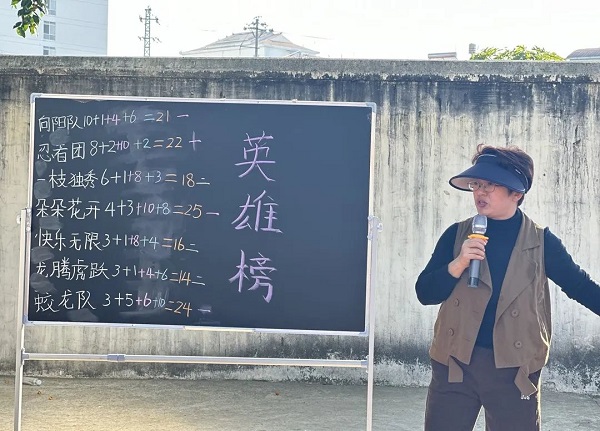 向阳队10+1+4+6=21一
忍者团8+2+10+2=22十
一枝独秀6+1+8+3=18二
朵朵花开4+3+10+8=25一
快乐无限3+1+8+4=16二
龙腾虎跃3+1+4+6=14二
蛟龙队3+5+6+10=24一
英雄榜